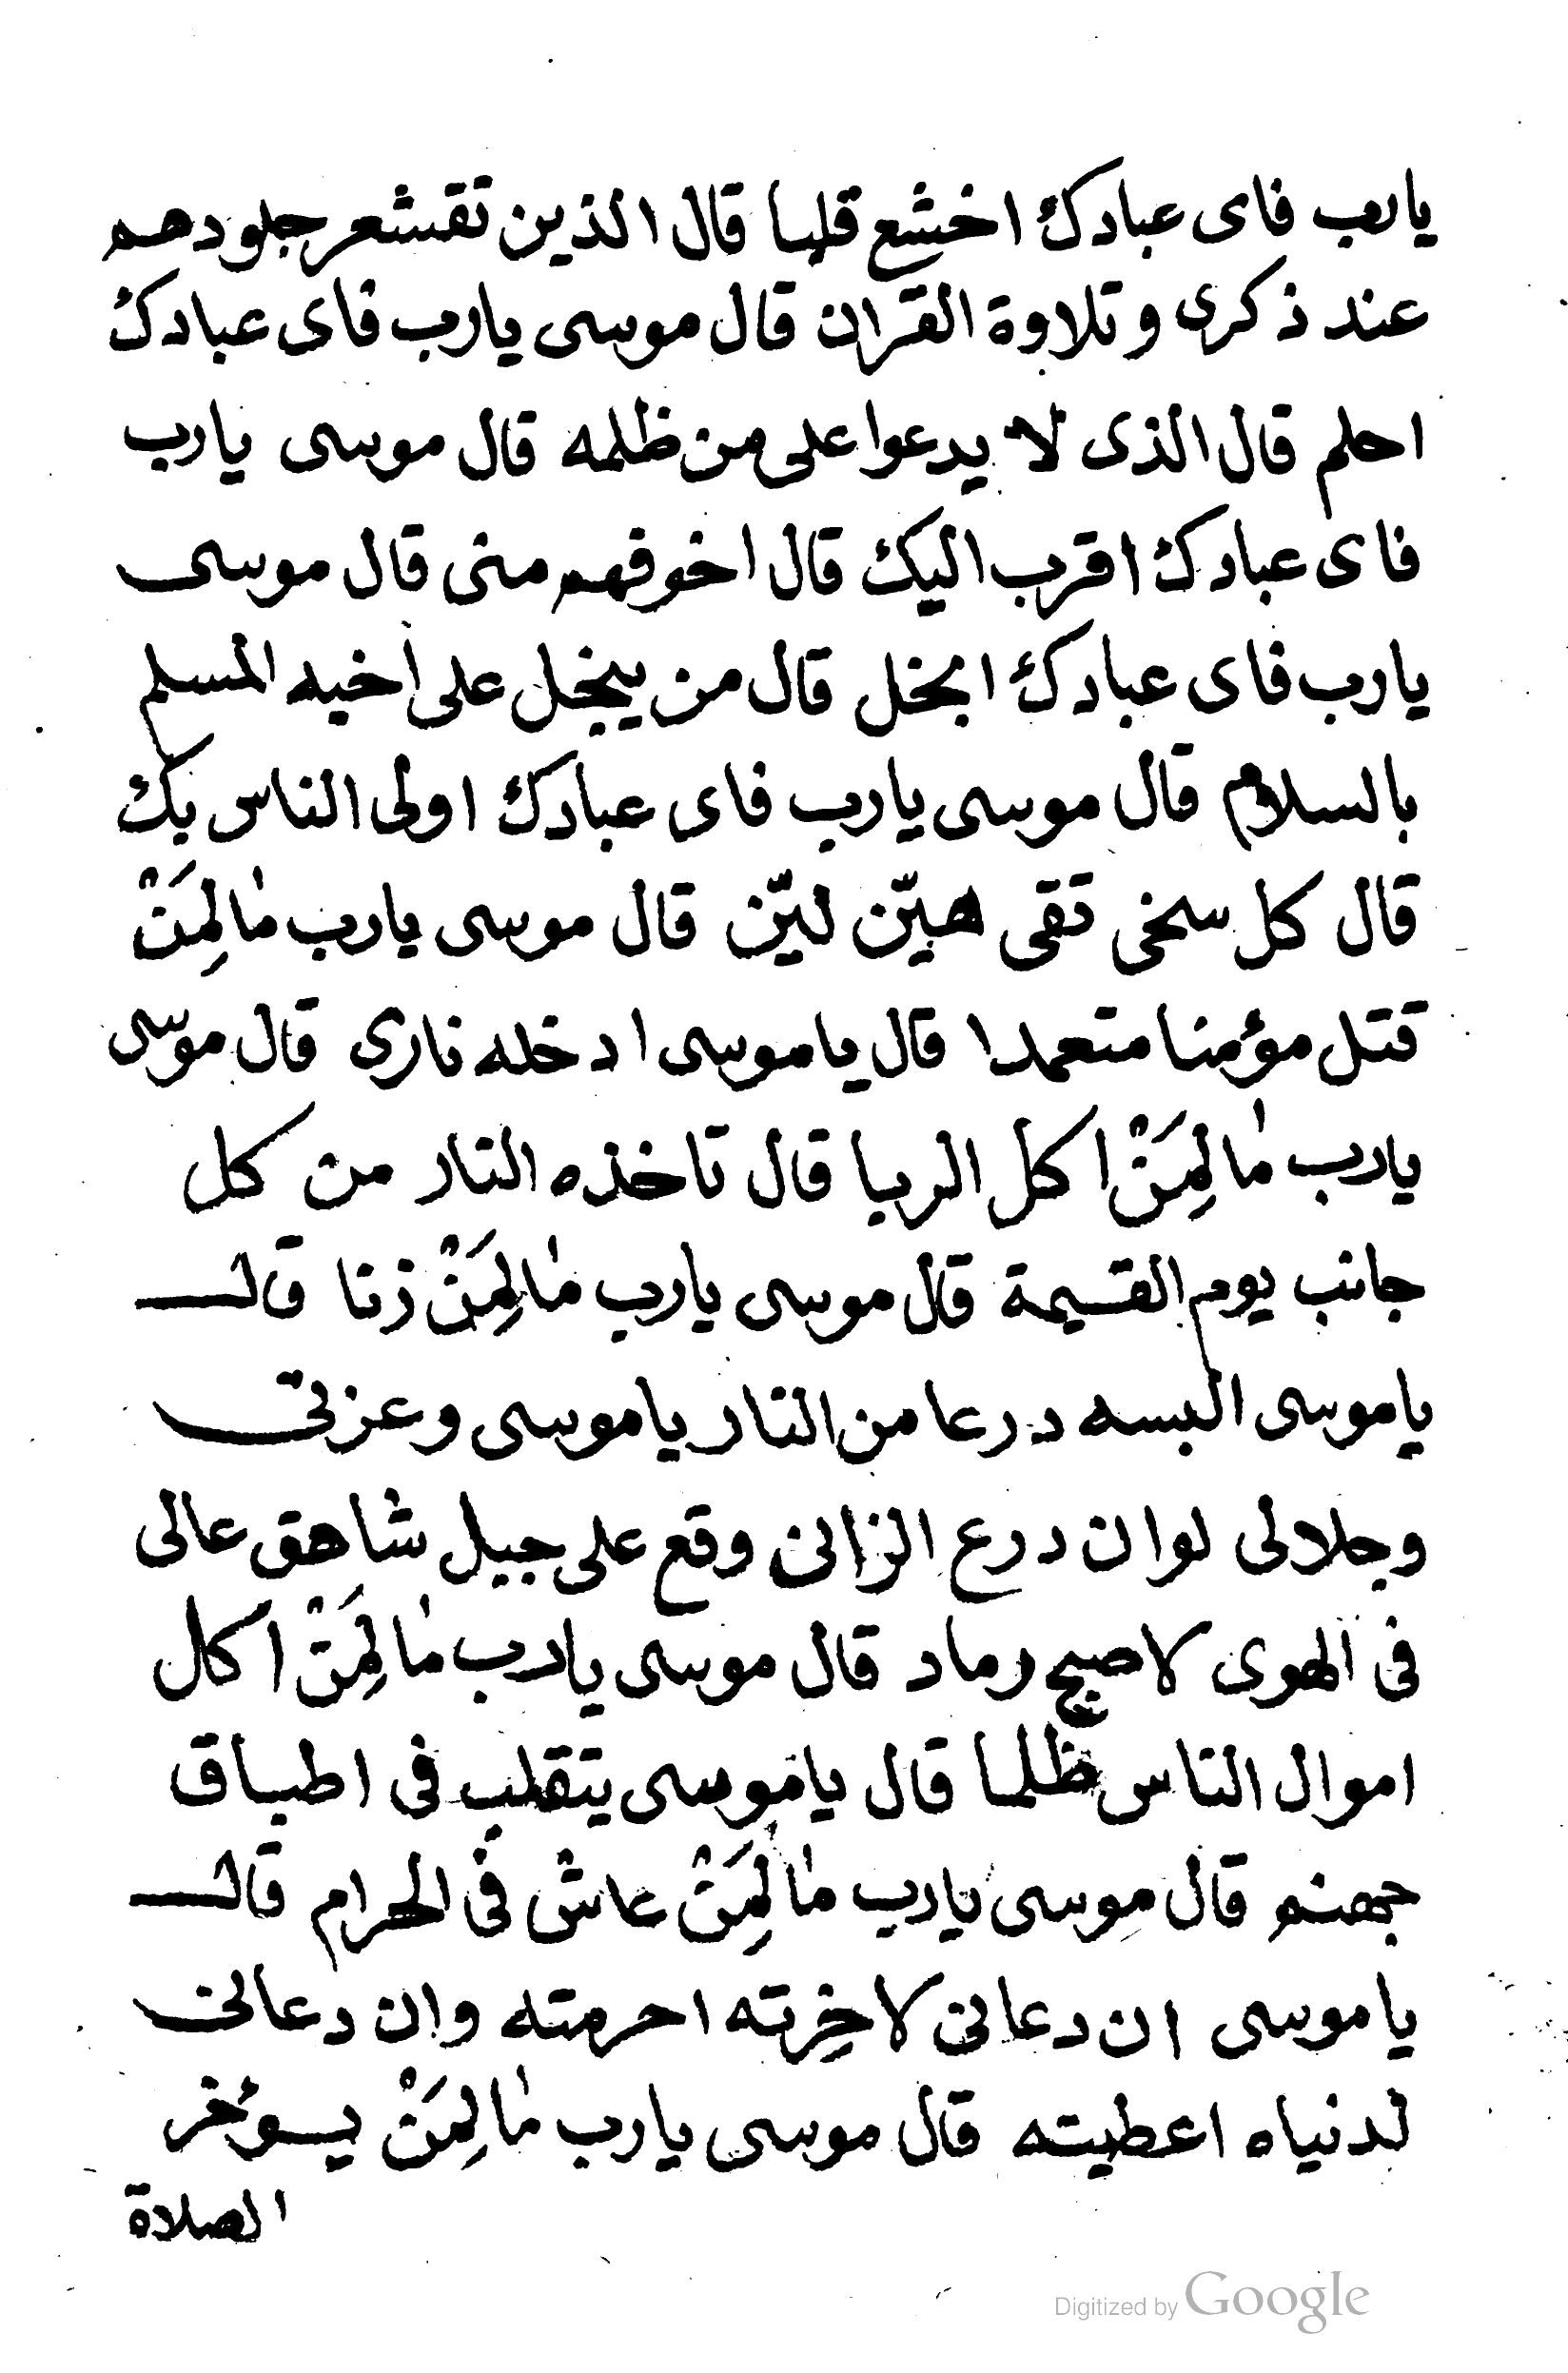 يارب فاى عبادك اخشع قلبا قال الذين تقشعر جلودهم
عند ذكرى وتلاوة القران قال موسى يارب فاى عبادك
احلم قال الذى لا يدعوا على من ظلمه قال موسى يارب
فاى عبادك اقرب اليك قال اخوفهم منى قال موسى
يارب فاى عبادك ابخل قال من يبخل على اخيه المسلم
بالسلام قال موسى يارب فاى عبادك اولى الناس بك
قال كل سخى تقى هيّن ليّن قال موسى يارب مٰا لِمَنْ
قتل مؤمنا متعمدا قال ياموسى ادخله نارى قال موسى
يارب مٰا لِمَنْ اكل الربا قال تاخذه النار من كل
جانب يوم القيمة قال موسى يارب مٰا لِمَنْ زنا قال
ياموسى البسه درعا من النار ياموسى وعزتى
وجلالى لوان درع الزانى وقع على جبل شاهق عالى
فى الهوى لاصبح رماد قال موسى يارب مٰا لِمَنْ اكل
اموال الناس ظلما قال ياموسى يتقلب فى اطباق
جهنم قال موسى يارب مٰا لِمَنْ عاش فى الحرام قال
ياموسى ان دعانى لاخِرته احرمته وان دعانى
لدنياه اعطيته قال موسى يارب مٰا لِمَنْ يسؤخر
الصلاة
Digitized by Google